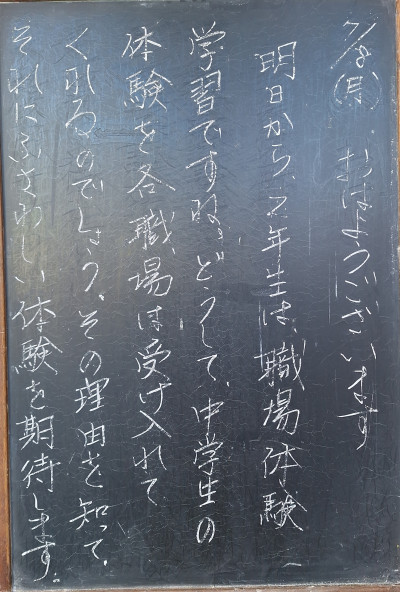 7/8(月) おはようございます
明日から、2年生は、職場体験
学習ですね。どうして、中学生の
体験を各職場は受け入れて
くれるのでしょう。その理由を知って、
それにふさわしい体験を期待します。